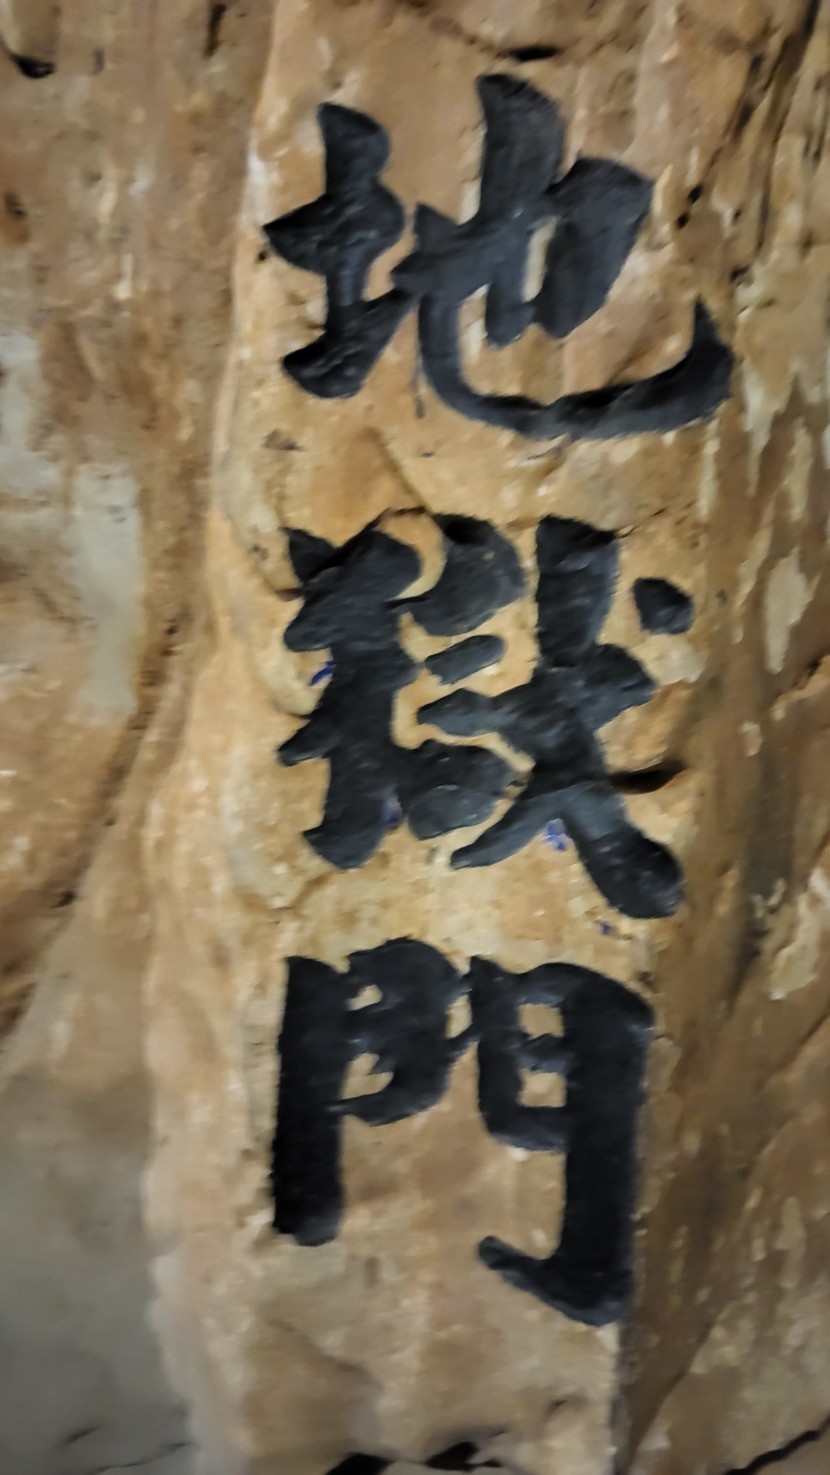 地獄門